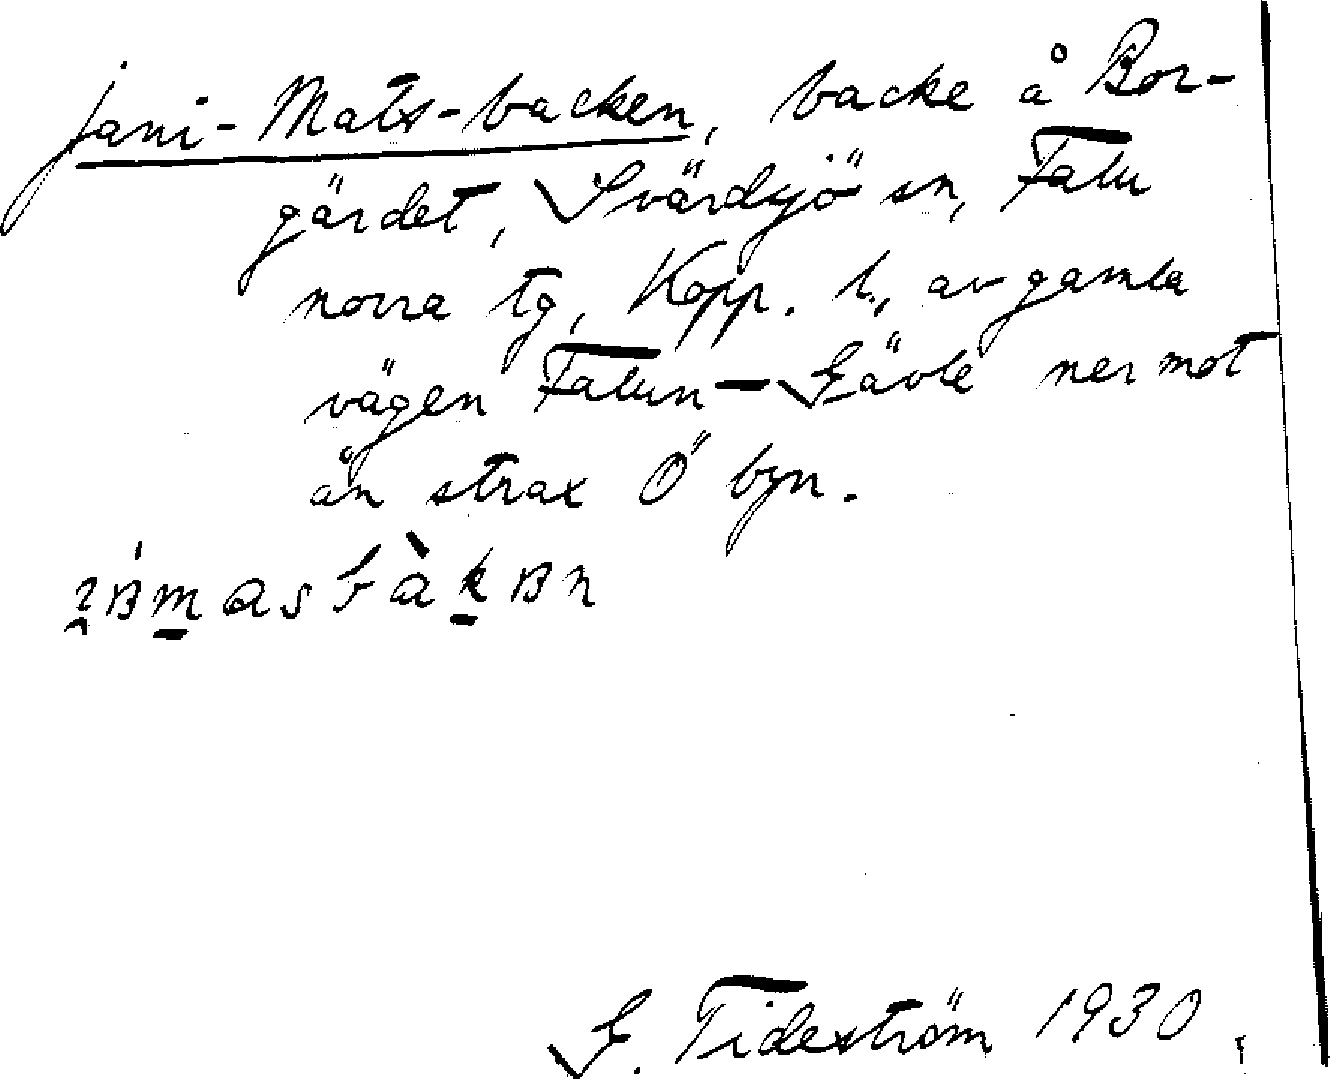 Jani-Mats-backen, backe å Bor-
gärdet, Svärdsjö sn, Falu
norra tg, Kopp. l., av gamla
vägen Falun–Gävle ner mot
ån strax Ö byn.
G. Tideström 1930.